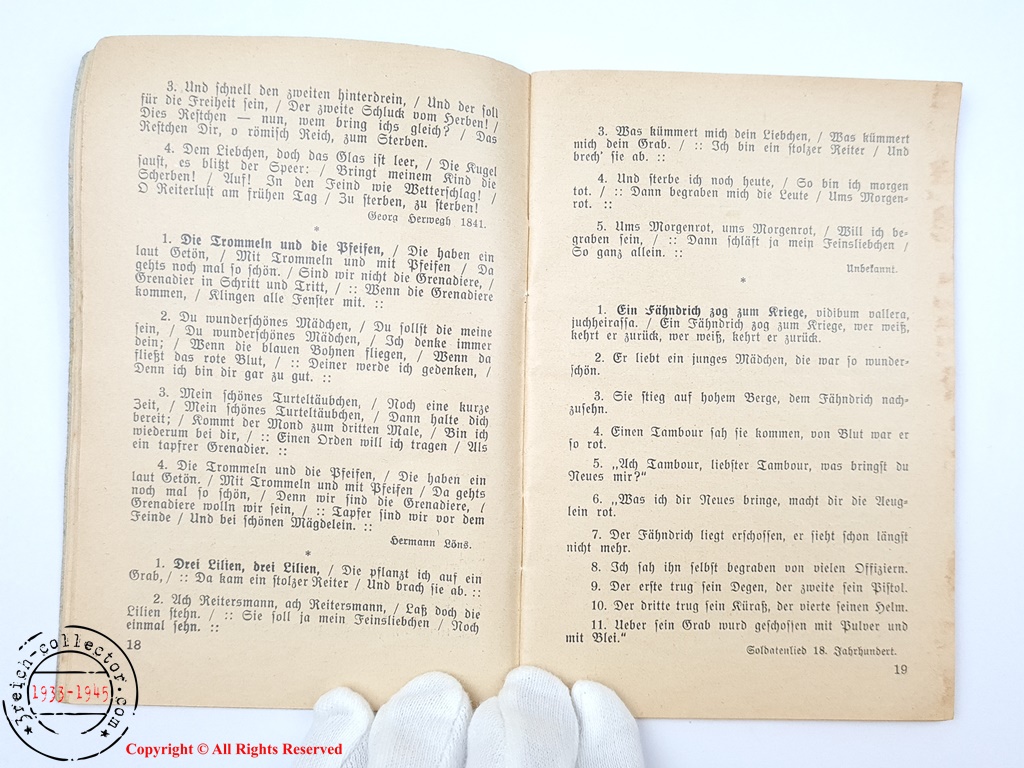 3. Und schnell den zweiten hinterdrein, / Und der soll
für die Freiheit sein, / Der zweite Schluck vom Herben! /
Dies Restchen — nun, wem bring ichs gleich? / Das
Restchen Dir, o römisch Reich, zum Sterben.
4. Dem Liebchen, doch das Glas ist leer, / Die Kugel
saust, es blitzt der Speer: / Bringt meinem Kind die
Scherben! / Auf! In den Feind wie Wetterschlag! /
O Reiterlust am frühen Tag / Zu sterben, zu sterben!
Georg Herwegh 1841.
*
1. Die Trommeln und die Pfeifen, / Die haben ein
laut Getön, / Mit Trommeln und mit Pfeifen / Da
gehts noch mal so schön. / Sind wir nicht die Grenadiere, /
Grenadier in Schritt und Tritt, / :: Wenn die Grenadiere
kommen, / Klingen alle Fenster mit. ::
2. Du wunderschönes Mädchen, / Du sollst die meine
sein, / Du wunderschönes Mädchen, / Ich denke immer
dein; / Wenn die blauen Bohnen fliegen, / Wenn da
fließt das rote Blut, / :: Deiner werde ich gedenken, /
Denn ich bin dir gar zu gut. ::
3. Mein schönes Turteltäubchen, / Noch eine kurze
Zeit, / Mein schönes Turteltäubchen, / Dann halte dich
bereit; / Kommt der Mond zum dritten Male, / Bin ich
wiederum bei dir, / :: Einen Orden will ich tragen / Als
ein tapfrer Grenadier. ::
4. Die Trommeln und die Pfeifen, / Die haben ein
laut Getön. / Mit Trommeln und mit Pfeifen / Da gehts
noch mal so schön, / Denn wir sind die Grenadiere, /
Grenadiere wolln wir sein, / :: Tapfer sind wir vor dem
Feinde / Und bei schönen Mägdelein. ::
Hermann Löns.
*
1. Drei Lilien, drei Lilien, / Die pflanzt ich auf ein
Grab, / :: Da kam ein stolzer Reiter / Und brach sie ab. ::
2. Ach Reitersmann, ach Reitersmann, / Laß doch die
Lilien stehn. / :: Sie soll ja mein Feinsliebchen / Noch
einmal sehn. ::
18
3. Was kümmert mich dein Liebchen, / Was kümmert
mich dein Grab. / :: Ich bin ein stolzer Reiter / Und
brech' sie ab. ::
4. Und sterbe ich noch heute, / So bin ich morgen
tot. / :: Dann begraben mich die Leute / Ums Morgen-
rot. ::
5. Ums Morgenrot, ums Morgenrot, / Will ich be-
graben sein, / :: Dann schläft ja mein Feinsliebchen /
So ganz allein. ::
Unbekannt.
*
1. Ein Fähndrich zog zum Kriege, vidibum vallera,
juchheirassa. / Ein Fähndrich zog zum Kriege, wer weiß,
kehrt er zurück, wer weiß, kehrt er zurück.
2. Er liebt ein junges Mädchen, die war so wunder-
schön.
3. Sie stieg auf hohem Berge, dem Fähndrich nach-
zusehn.
4. Einen Tambour sah sie kommen, von Blut war er
so rot.
5. „Ach Tambour, liebster Tambour, was bringst du
Neues mir?“
6. „Was ich dir Neues bringe, macht dir die Aeug-
lein rot.
7. Der Fähndrich liegt erschossen, er sieht schon längst
nicht mehr.
8. Ich sah ihn selbst begraben von vielen Offiziern.
9. Der erste trug sein Degen, der zweite sein Pistol.
10. Der dritte trug sein Küraß, der vierte seinen Helm.
11. Ueber sein Grab wurd geschossen mit Pulver und
mit Blei.“
Soldatenlied 18. Jahrhundert.
19
3reich-collector.com
1933-1945
Copyright © All Rights Reserved